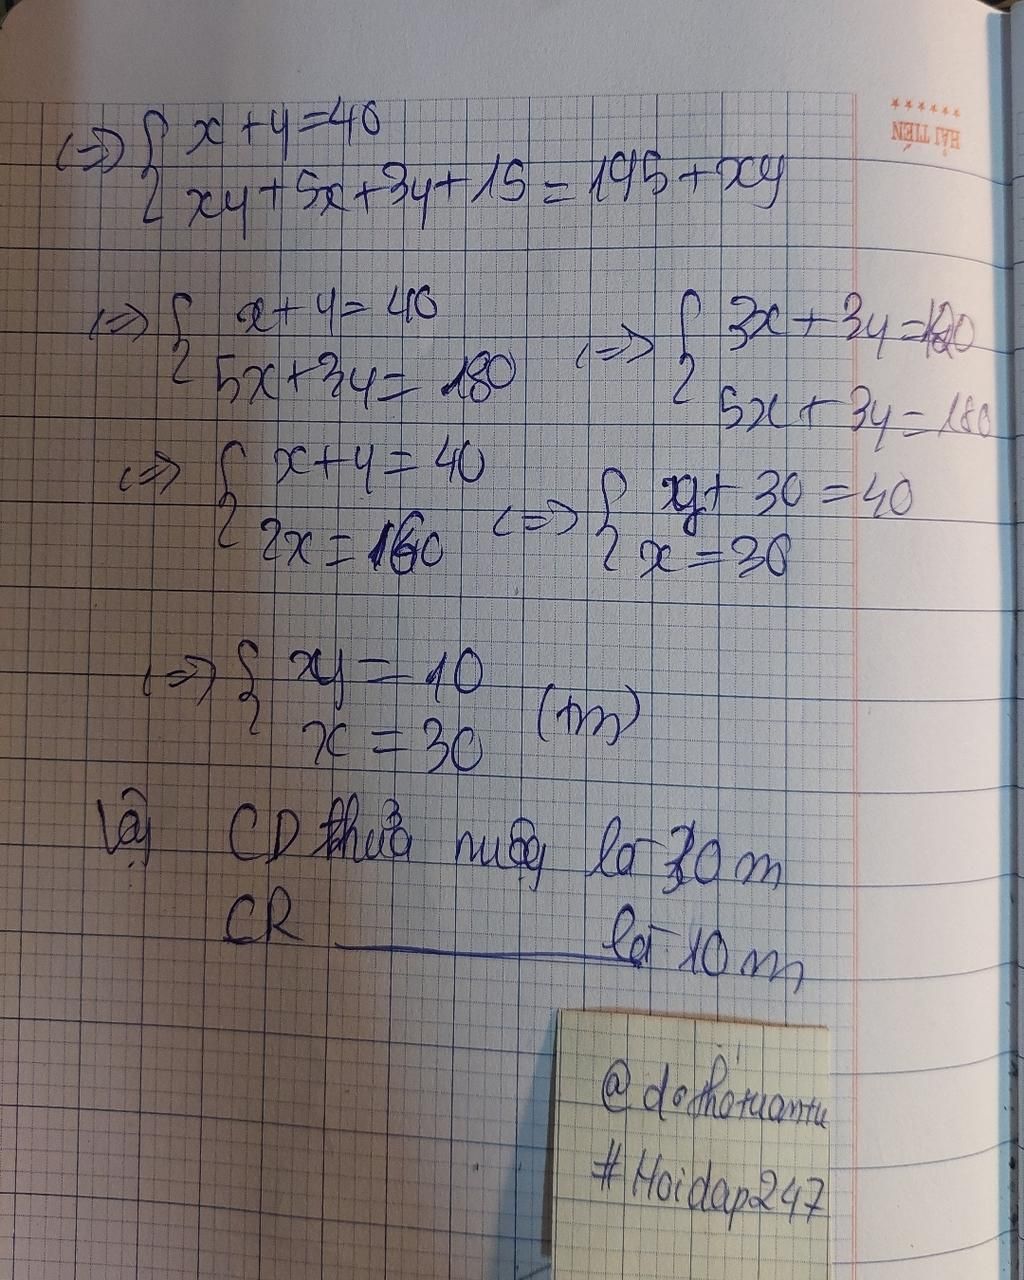 HẢI TIẾN
<=> { x + y = 40
xy + 5x + 3y + 15 = 195 + xy
<=> { x + y = 40
5x + 3y = 180
<=> { 3x + 3y = 120
5x + 3y = 180
<=> { x + y = 40
2x = 60
<=> { y + 30 = 40
x = 30
<=> { y = 10
x = 30 (tm)
Vậy CD thửa ruộng là 30 m
CR ________ là 10 m
@dothotuantu
#Hoidap247